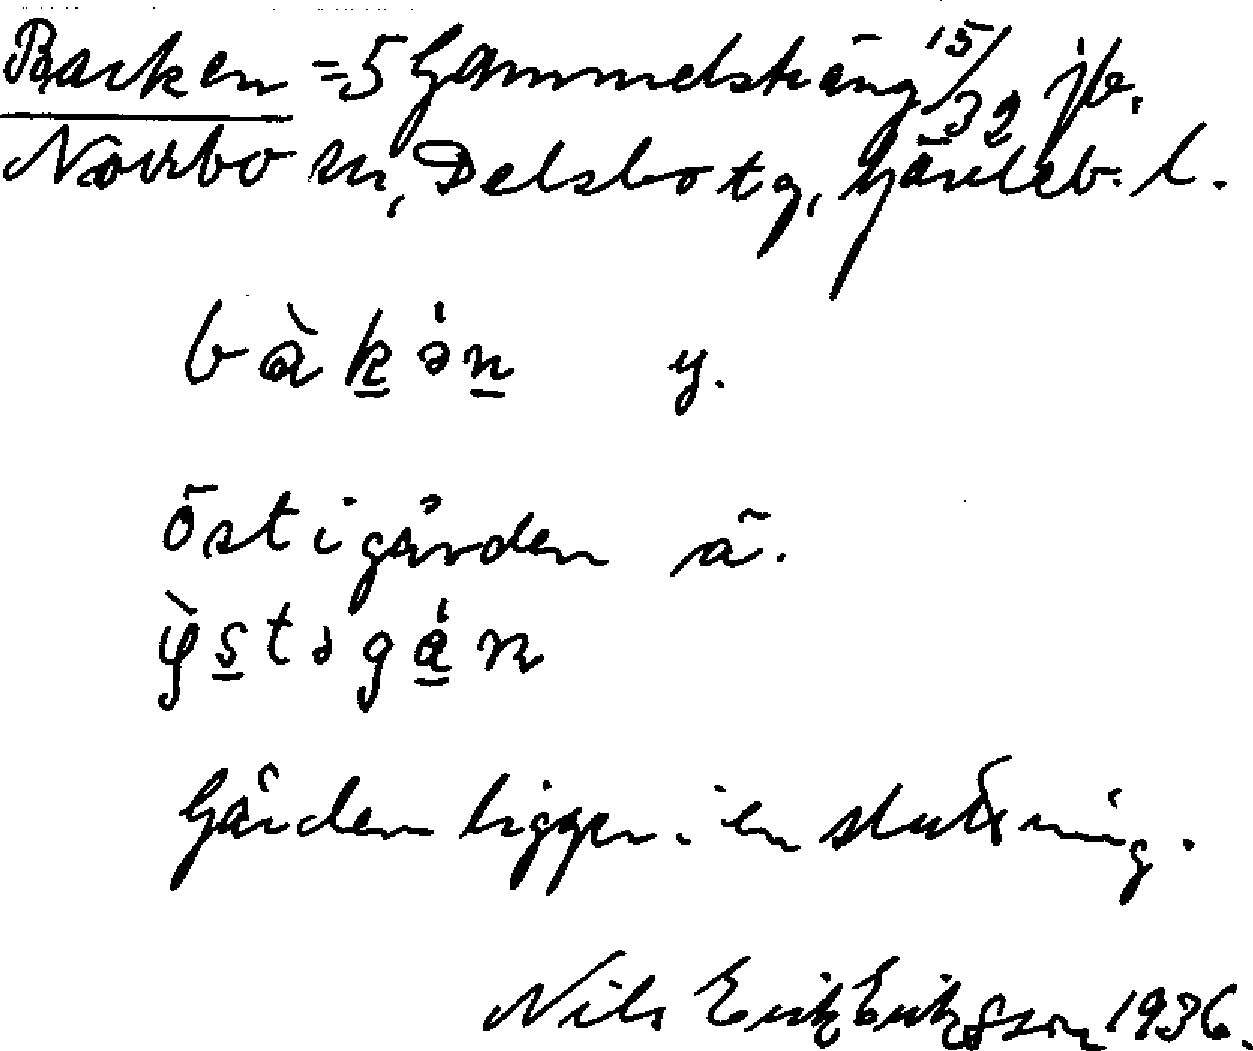 Backen = 5 Gammelsträng 15/32 jb.
Norrbo sn, Delsbo tg, Gävleb. l.
bàkə́n y.
Östigården ä.
gården ligger i en sluttning.
Nils Erik Eriksson 1936.